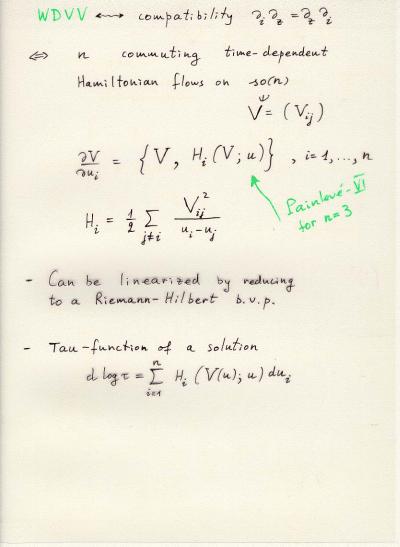 WDVV ⟷ compatibility ∂ᵢ ∂_z = ∂_z ∂ᵢ
⇔ n commuting time-dependent
Hamiltonian flows on so(n)
V = (V_ij)
∂V/∂uᵢ = {V, Hᵢ(V;u)}, i=1,...,n
Painlevé-VI
for n=3
Hᵢ = 1/2 ∑_{j≠i} V_ij²/(uᵢ-u_j)
- Can be linearized by reducing
to a Riemann-Hilbert b.v.p.
- Tau-function of a solution
d log τ = ∑_{i=1}^{n} Hᵢ (V(u);u) duᵢ